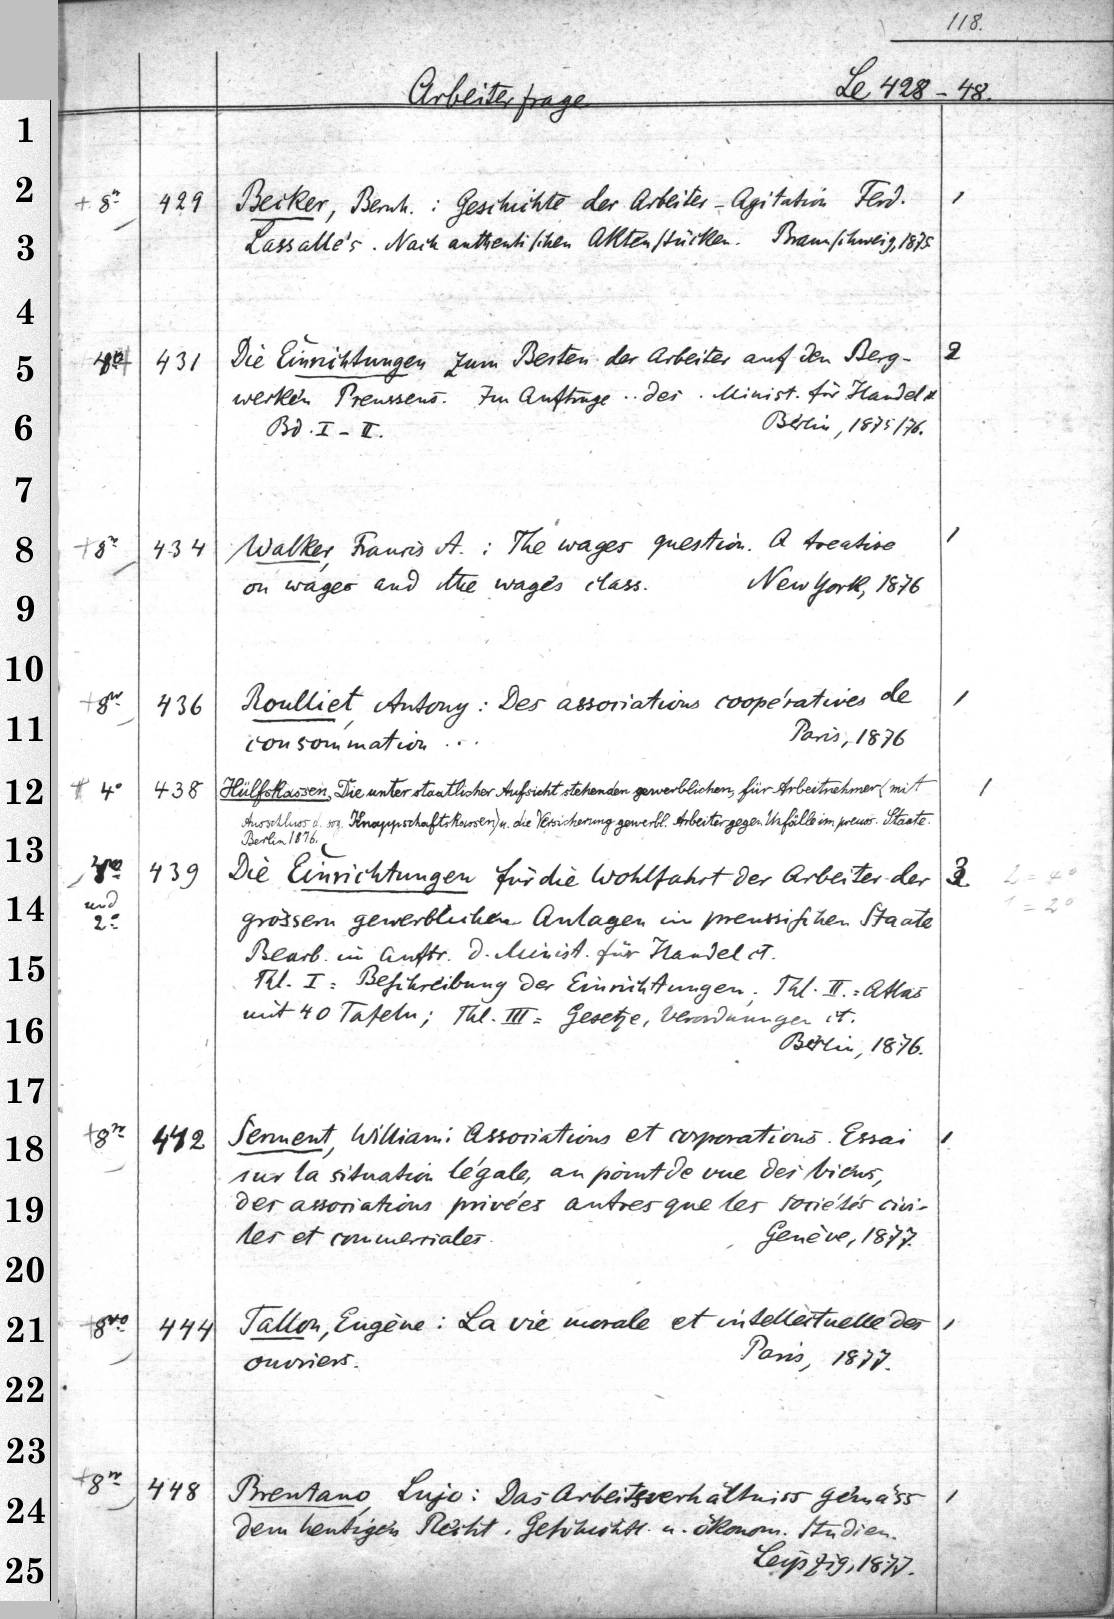 118.
Arbeiterfrage Le 428-48.
1
2
3
4
5
6
7
8
9
10
11
12
13
14
15
16
17
18
19
20
21
22
23
24
25
+ 8º 429 Becker, Bernh. : Geschichte der Arbeiter-Agitation Ferd. 1
Lassalle's. Nach authentischen Aktenstücken. Braunschweig, 1875
431 Die Einrichtungen zum Besten der Arbeiter auf den Berg- 2
werken Preussens. Im Auftrage .. des . Minist. für Handel
Bd. I-II. Berlin, 1875/76.
+ 8º 434 Walker, Francis A. : The wages question. A treatise 1
on wages and the wages class. New York, 1876
+ 8º 436 Roulliet, Antony : Des associations coopératives de 1
consommation ... Paris, 1876
+ 4º 438 Hülfskassen, Die unter staatlicher Aufsicht stehenden gewerblichen, für Arbeitnehmer (mit 1
Ausschluss d. sog. Knappschaftskassen) u. die Versicherung gewerbl. Arbeiter gegen Unfälle im preuss. Staate.
Berlin 1876.
4º 439 Die Einrichtungen für die Wohlfahrt der Arbeiter der 3 2 = 4º
und grössern gewerblichen Anlagen im preussischen Staate 1 = 2º
2º Bearb. im Auftr. d. Minist. für Handel et.
Thl. I = Beschreibung der Einrichtungen; Thl. II. = Atlas
mit 40 Tafeln; Thl. III = Gesetze, Verordnungen et.
Berlin, 1876.
+ 8º 442 Serment, William : Associations et corporations. Essai 1
sur la situation légale, au point de vue des biens,
des associations privées autres que les sociétés civi-
les et commerciales. Genève, 1877.
+ 8º 444 Tallon, Eugène : La vie morale et intellectuelle des 1
ouvriers. Paris, 1877.
+ 8º 448 Brentano, Lujo : Das Arbeitsverhältniss gemäss 1
dem heutigen Recht. Geschichtl. u. ökonom. Studien.
Leipzig, 1877.